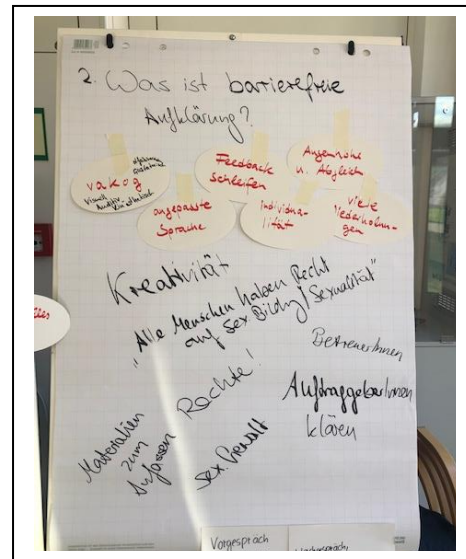 2. Was ist barrierefreie
Aufklärung?
vakog
Visuell
Auditiv
Feedback
schleifen
Augenhöhe
u. Abgleich
angepasste
Sprache
individua-
lität
viele
Wiederholun-
gen
Kreativität
"Alle Menschen haben Recht
auf sex Bildung/Sexualität"
BetreuerInnen
Rechte!
AuftraggeberInnen
klären
Materialien
zum
Anfassen
sex. Gewalt
Vorgespräch